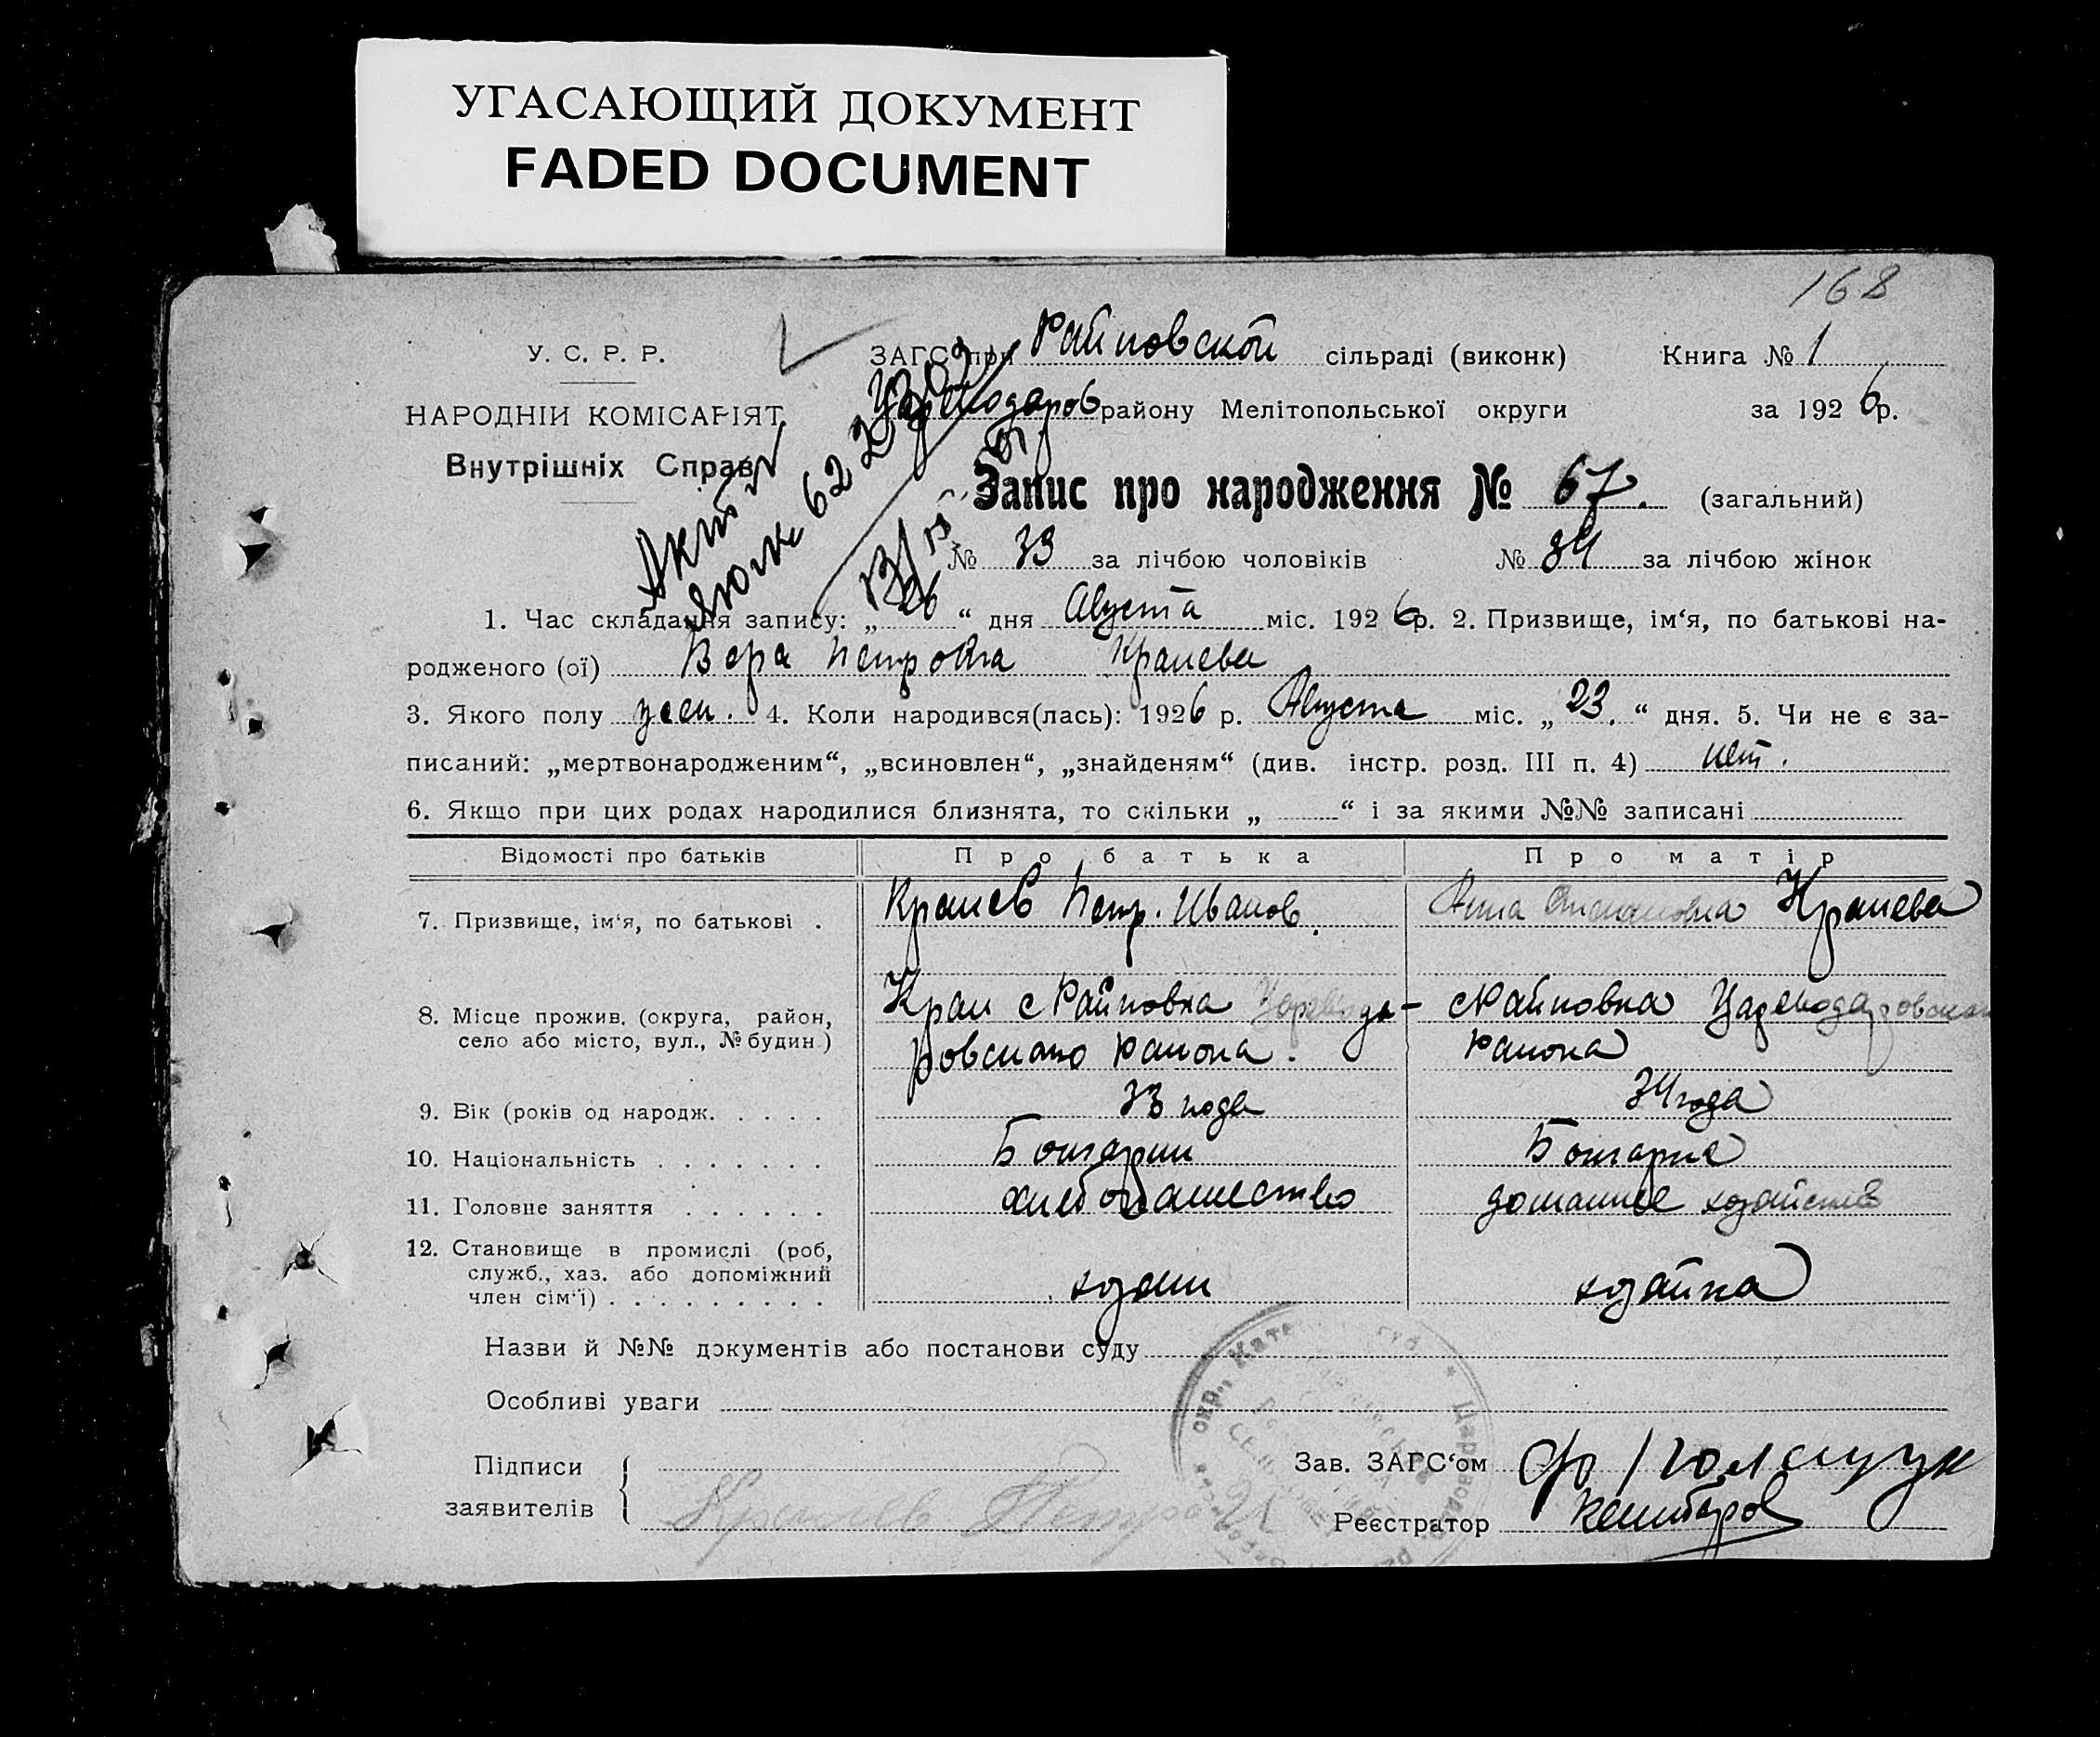 УГАСАЮЩИЙ ДОКУМЕНТ
FADED DOCUMENT
168
У. С. Р. Р.
ЗАГС при Райновской сільраді (виконк) Книга № 1
НАРОДНІЙ КОМІСАРІЯТ
Цареводаров району Мелітопольської округи за 1926 р.
Внутрішніх Справ
Запис про народження № 67. (загальний)
№ 33 за лічбою чоловіків № 34 за лічбою жінок
1. Час складання запису: „26“ дня Августа міс. 1926 р. 2. Призвище, ім‘я, по батькові на-
родженого (ої) Вера Петровна Кралева
3. Якого полу жен. 4. Коли народився(лась): 1926 р. Августа міс. „23.“ дня. 5. Чи не є за-
писаний: „мертвонародженим“, „всиновлен“, „знайденям“ (див. інстр. розд. III п. 4) нет.
6. Якщо при цих родах народилися близнята, то скільки „ “ і за якими №№ записані
Відомості про батьків Про батька Про матір
7. Призвище, ім‘я, по батькові . Кралев Петр. Иванов. Анна Кралева
8. Місце прожив. (округа, район, село або місто, вул., № будин.) с Райновка Царевода- с Райновка Цареводаровском
ровского района. района
9. Вік (років од народж. . . . . 33 года 34 года
10. Національність . . . . . . . Болгарин Болгарка
11. Головне заняття . . . . . . хлебопашество домашнее хозяйство
12. Становище в промислі (роб, служб., хаз. або допоміжний член сім‘ї) . . . . . . . . . хозяин хозяйка
Назви й №№ документів або постанови суду
Особливі уваги
Підписи заявителів Кралев Петро И
Зав. ЗАГС‘ом
Реєстратор